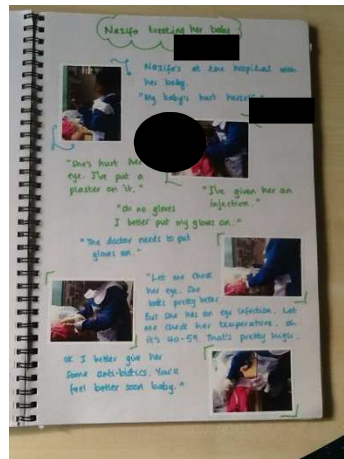 Nazifa treating her baby
Nazifa's at the hospital with
her baby.
"My baby's hurt
"She's hurt her
eye. I've put a
plaster on it."
"I've given her an
injection."
"Oh no gloves
I better put my gloves on."
"The doctor needs to put
gloves on."
"Let me check
her eye. She
looks pretty better
But she has an eye infection. Let
me check her temperature. Oh
it's 40-59. That's pretty high.
OK I better give her
some anti-biotics. You'll
feel better soon baby."